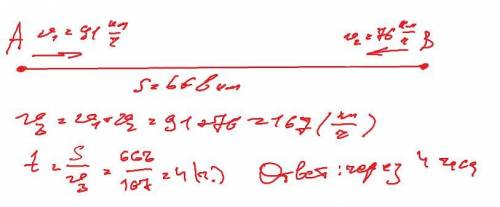 A v₁=91 км/ч v₂=76 км/ч B
S=668 км
v₃=v₁+v₂=91+76=167 (км/ч)
t=S/v₃=668/167=4 (ч.) Ответ: через 4 часа